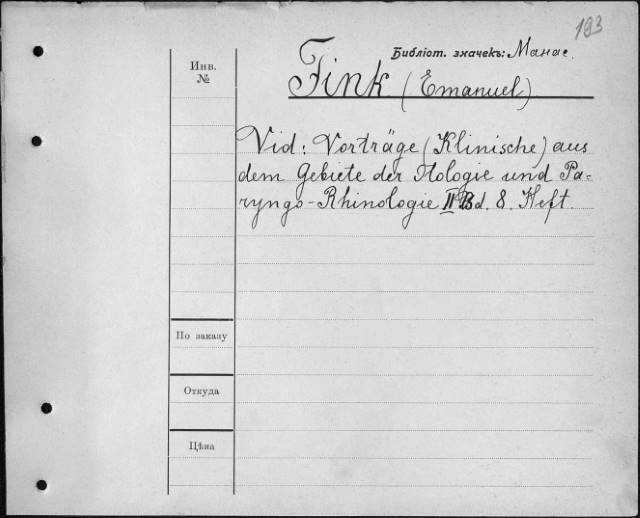 193
Библіот. значекъ: Манас.
Инв.
№
Fink (Emanuel)
Vid: Vorträge (Klinische) aus
dem Gebiete der Otologie und Pa-
ryngo-Rhinologie II Bd. 8. Heft.
По заказу
Откуда
Цѣна